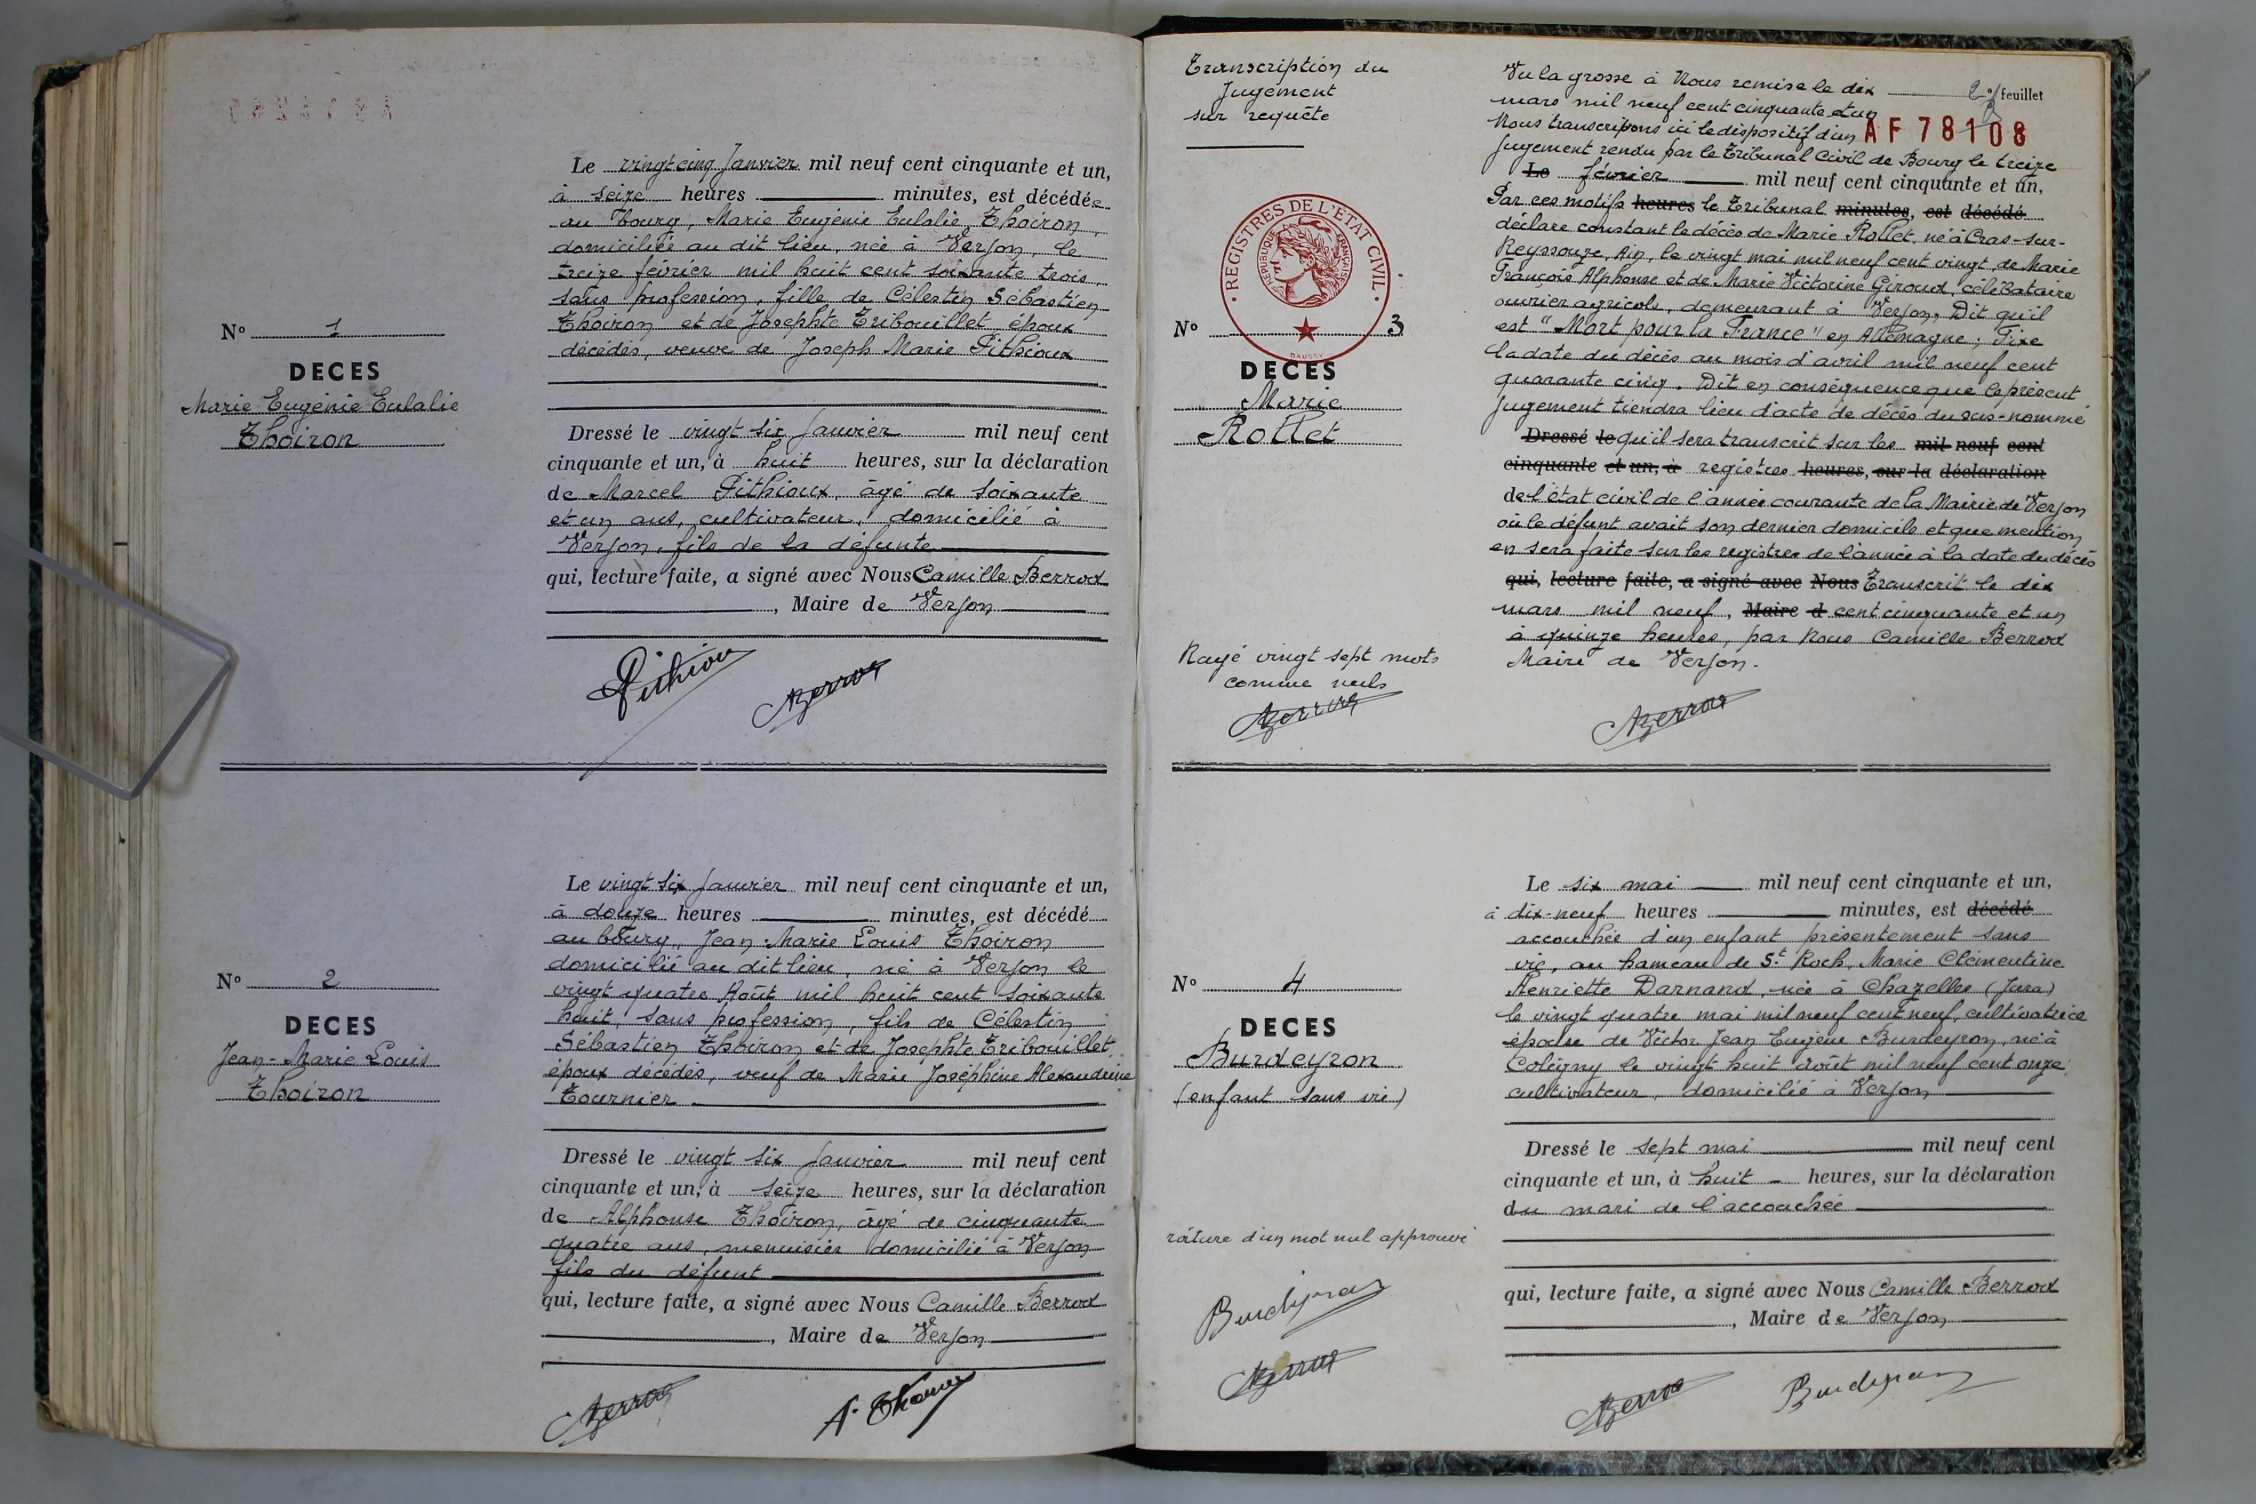 Le vingt cinq Janvier mil neuf cent cinquante et un,
à seize heures minutes, est décédée
au bourg, Marie Eugénie Eulalie Thoiron,
domiciliée au dit lieu, née à Verjon, le
treize février mil huit cent soixante trois,
sans profession, fille de Célestin Sébastien
Thoiron et de Josephte Tribouillet, époux
décédés, veuve de Joseph Marie Pithioux
N° 1
DECES
Marie Eugénie Eulalie
Thoiron
Dressé le vingt six Janvier mil neuf cent
cinquante et un, à huit heures, sur la déclaration
de Marcel Pithioux, âgé de soixante
et un ans, cultivateur, domicilié à
Verjon, fils de la défunte
qui, lecture faite, a signé avec Nous Camille Berrod
, Maire de Verjon
Pithiou
Berrod
Le vingt six Janvier mil neuf cent cinquante et un,
à douze heures minutes, est décédé
au bourg, Jean-Marie Louis Thoiron
domicilié au dit lieu, né à Verjon le
vingt quatre Août mil huit cent soixante
huit, sans profession, fils de Célestin
Sébastien Thoiron et de Josephte Tribouillet,
époux décédés, veuf de Marie Joséphine Alexandrine
Tournier
N° 2
DECES
Jean-Marie Louis
Thoiron
Dressé le vingt six Janvier mil neuf cent
cinquante et un, à seize heures, sur la déclaration
de Alphonse Thoiron, âgé de cinquante
quatre ans, menuisier domicilié à Verjon
fils du défunt
qui, lecture faite, a signé avec Nous Camille Berrod
, Maire de Verjon
Berrod
Transcription du
Jugement
sur requête
feuillet
AF 78108
Vu la grosse à Nous remise le dix
mars mil neuf cent cinquante et un
Nous transcrivons ici le dispositif d'un
Jugement rendu par le Tribunal Civil de Bourg le treize
Le février mil neuf cent cinquante et un,
Par ces motifs heures le Tribunal minutes, est décédé
déclare constant le décès de Marie Rottet, né à Cras-sur-
Reyssouze, Ain, le vingt mai mil neuf cent vingt, de Marie
François Alphonse et de Marie Victorine Giroud, célibataire
ouvrier agricole, demeurant à Verjon. Dit qu'il
est "Mort pour la France" en Allemagne; Fixe
la date du décès au mois d'avril mil neuf cent
quarante cinq. Dit en conséquence que le présent
Jugement tiendra lieu d'acte de décès du sus-nommé
REGISTRES DE L'ÉTAT CIVIL
RÉPUBLIQUE FRANÇAISE
N° 3
DECES
Marie
Rottet
Dressé le qu'il sera transcrit sur les mil neuf cent
cinquante et un, à registres heures, sur la déclaration
de l'état civil de l'année courante de la Mairie de Verjon
où le défunt avait son dernier domicile et que mention
en sera faite sur les registres de l'année à la date du décès
qui, lecture faite, a signé avec Nous Transcrit le dix
mars mil neuf, Maire d cent cinquante et un
à quinze heures, par Nous Camille Berrod
Maire de Verjon.
Rayé vingt sept mots
comme nuls
Berrod
Berrod
Le six mai mil neuf cent cinquante et un,
à dix-neuf heures minutes, est décédé
accouchée d'un enfant présentement sans
vie, au hameau de St Roch, Marie Clementine
Henriette Darnand, née à Chazelles (Jura)
le vingt quatre mai mil neuf cent neuf, cultivatrice
épouse de Victor Jean Eugène Burdeyron, né à
Coligny le vingt huit août mil neuf cent onze,
cultivateur, domicilié à Verjon
N° 4
DECES
Burdeyron
(enfant sans vie)
Dressé le sept mai mil neuf cent
cinquante et un, à huit heures, sur la déclaration
du mari de l'accouchée
rature d'un mot nul approuvé
qui, lecture faite, a signé avec Nous Camille Berrod
, Maire de Verjon
Burdeyron
Berrod
Berrod
Burdeyron